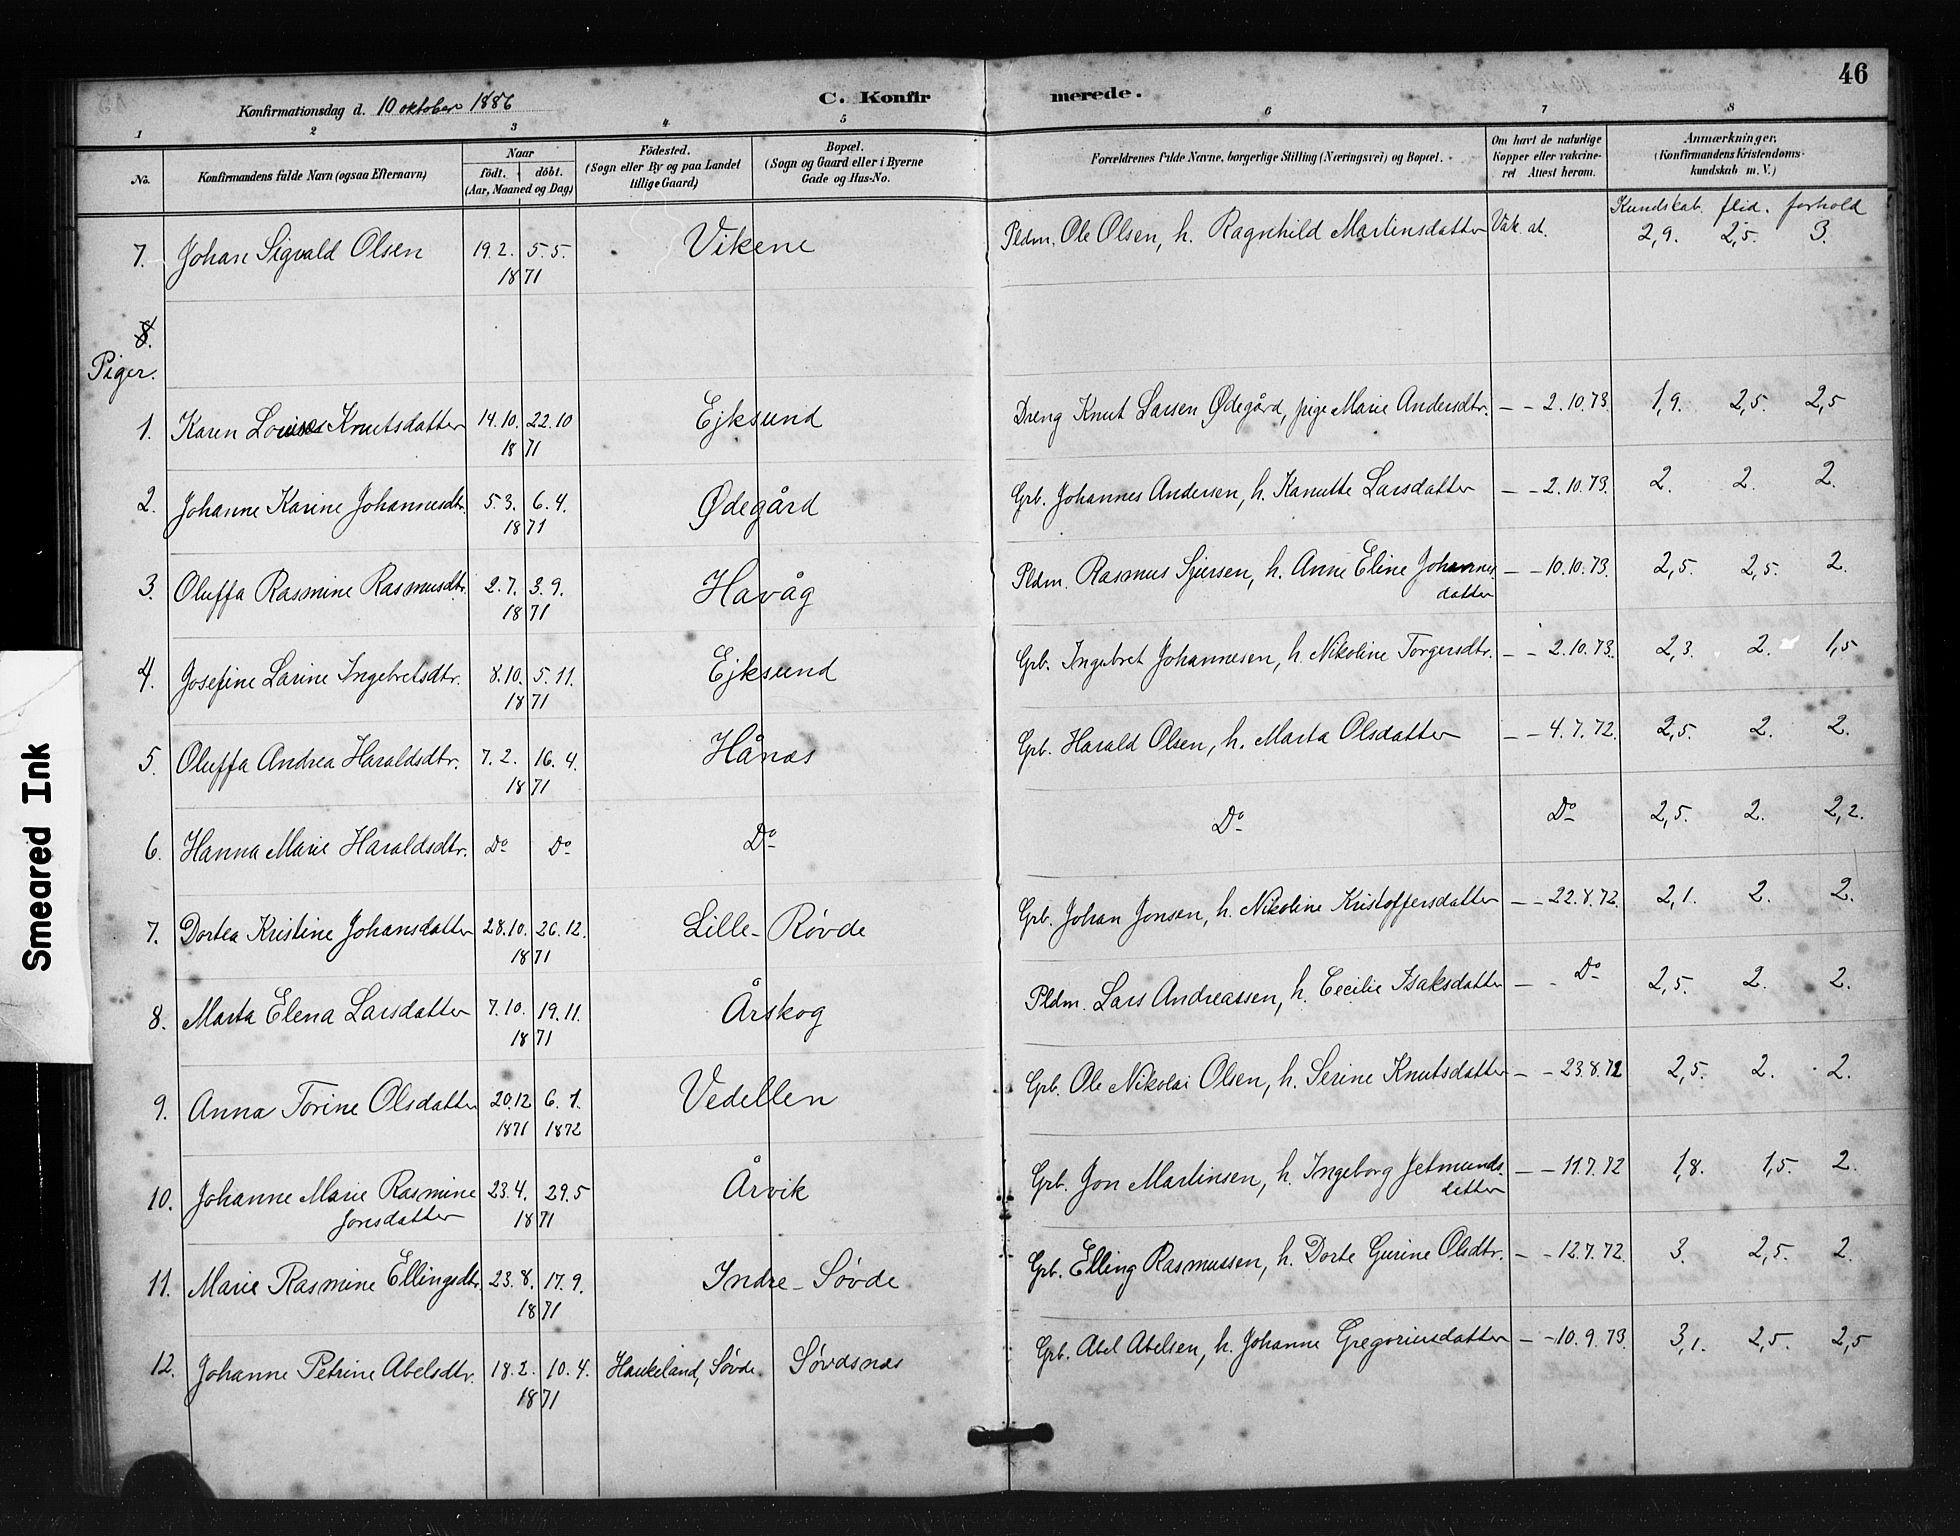 46
Konfirmationsdag d. 10 oktober 1886
C. Konfirmerede.
1 2 3 4 5 6 7 8
No.
Konfirmandens fulde Navn (ogsaa Efternavn)
Naar
födt. döbt.
(Aar, Maaned og Dag)
Födested.
(Sogn eller By og paa Landet
tillige Gaard)
Bopæl.
(Sogn og Gaard eller i Byerne
Gade og Hus-No.
Forældrenes fulde Navne, borgerlige Stilling (Næringsvei) og Bopæl.
Om havt de naturlige
Kopper eller vakcine-
ret Attest herom.
Anmærkninger.
(Konfirmandens Kristendoms-
kundskab m. V.)
Kundskab. flid. forhold
7. Johan Sigvald Olsen 19.2. 5.5. 1871 Vikene Pldm. Ole Olsen, h. Ragnhild Martinsdatter Vak. at. 2,9. 2,5. 3.
8.
Piger.
1. Karen Louise Knutsdatter 14.10. 22.10 1871 Ejksund Dreng Knut Larsen Ødegård, pige Marie Andersdtr. — — 2.10.73. 1,9. 2,5. 2,5
2. Johanne Karine Johannesdtr. 5.3. 6.4. 1871 Ødegård Grb. Johannes Andersen, h. Kanutte Larsdatter — — 2.10.73. 2. 2. 2.
3. Oluffa Rasmine Rasmusdtr. 2.7. 3.9. 1871 Havåg Pldm. Rasmus Sjursen, h. Anne Eline Johannes
datter — — 10.10.73. 2,5. 2,5. 2.
4. Josefine Larine Ingebretsdtr. 8.10. 5.11. 1871 Ejksund Grb. Ingebret Johannesen, h. Nikoline Torgersdtr. — — 2.10.73. 2,3. 2. 1,5
5. Oluffa Andrea Haraldsdtr. 7.2. 16.4. 1871 Hånæs Grb. Harald Olsen, h. Marta Olsdatter — — 4.7.72. 2,5. 2. 2.
6. Hanna Marie Haraldsdtr. Do Do Do Do Do 2,5. 2. 2,2.
7. Dortea Kristine Johansdatter 28.10. 26.12. 1871 Lille-Røvde Grb. Johan Jonsen, h. Nikoline Kristoffersdatter — — 22.8.72. 2,1. 2. 2.
8. Marta Elena Larsdatter 7.10. 19.11. 1871 Årskog Pldm. Lars Andreassen, h. Cecilie Isaksdatter — - Do 2,5. 2. 2.
9. Anna Torine Olsdatter 20.12 1871 6.1. 1872 Vedellen Grb. Ole Nikolai Olsen, h. Serine Knutsdatter — — 23.8.72 2,5. 2. 2.
10. Johanne Marie Rasmine
Jonsdatter 23.4. 29.5 1871 Årvik Grb. Jon Martinsen, h. Ingeborg Jetmunds.
datter — — 11.7.72 1,8. 1,5. 2.
11. Marie Rasmine Ellingsdtr. 23.8. 17.9. 1871 Indre-Søvde Grb. Elling Rasmussen, h. Dorte Gurine Olsdtr. — — 12.7.72 3. 2,5. 2.
12. Johanne Petrine Abelsdtr. 18.2. 10.4. 1871 Haukeland, Søvde. Søvdsnæs Grb. Abel Abelsen, h. Johanne Gregoriusdatter — — 10.9.73 3,1. 2,5. 2,5
Smeared Ink